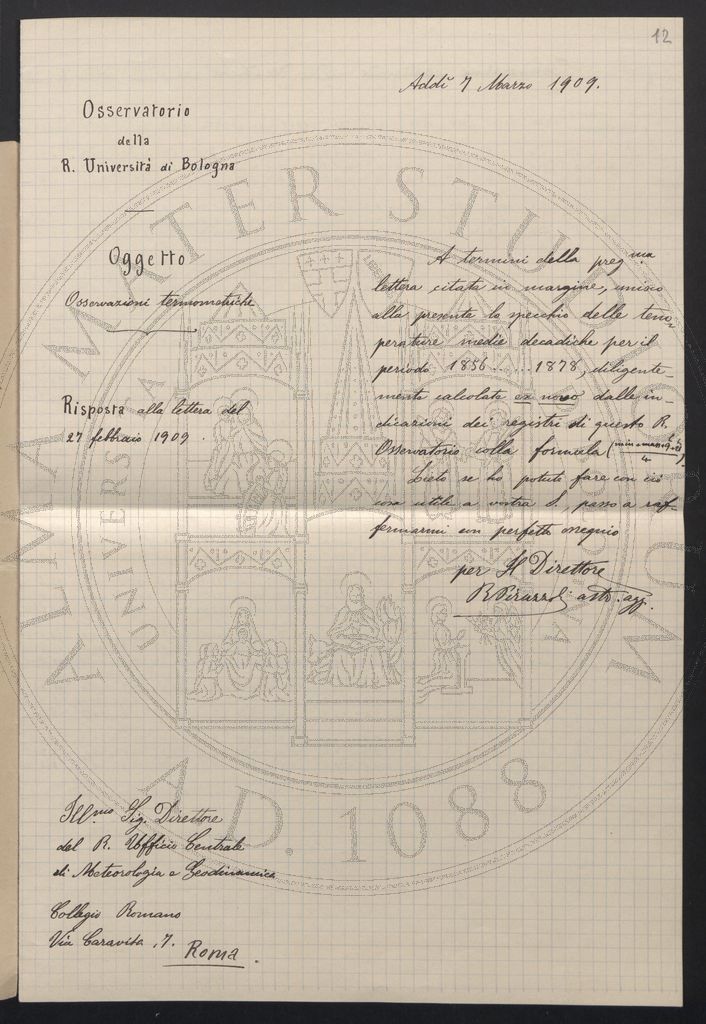 12
Addì 7 Marzo 1909.
Osservatorio
della
R. Università di Bologna
Oggetto
Osservazioni termometriche
Risposta alla lettera del
27 febbraio 1909.
A termini della preg.ma
lettera citata in margine, unisco
alla presente lo specchio delle tem-
perature medie decadiche per il
periodo 1856 ..... 1878, diligente-
mente calcolate ex novo dalle in-
dicazioni dei registri di questo R.
Osservatorio colla formula (min+max+9h+21h / 4).
Lieto se ho potuto fare con ciò
cosa utile a vostra S., passo a raf-
fermarmi con perfetto ossequio
per Il Direttore
R Pirazzoli astr. agg.
Ill.mo Sig. Direttore
del R. Ufficio Centrale
di Meteorologia e Geodinamica
Collegio Romano
Via Caravita, 7.
Roma.
ALMA MATER STUDIORUM
A.D. 1088